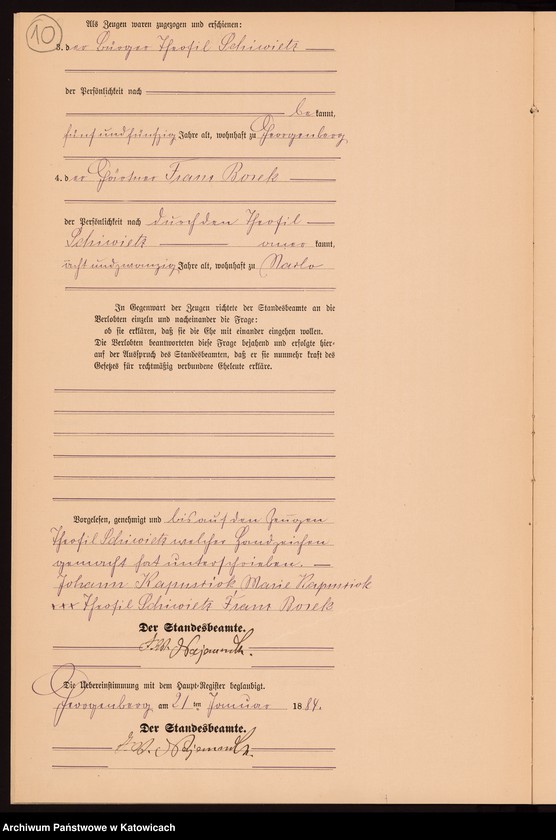 10
Als Zeugen waren zugezogen und erschienen:
3. der Bürger Theofil Schiwietz
der Persönlichkeit nach
be kannt,
fünfundfünfzig Jahre alt, wohnhaft zu Georgenberg
4. der Gärtner Franz
der Persönlichkeit nach durch den Theofil
Schiwietz kannt,
acht undzwanzig Jahre alt, wohnhaft zu Naklo
In Gegenwart der Zeugen richtete der Standesbeamte an die
Verlobten einzeln und nacheinander die Frage:
ob sie erklären, daß sie die Ehe mit einander eingehen wollen.
Die Verlobten beantworteten diese Frage bejahend und erfolgte hier-
auf der Ausspruch des Standesbeamten, daß er sie nunmehr kraft des
Gesetzes für rechtmäßig verbundene Eheleute erkläre.
Vorgelesen, genehmigt und bis auf den Zeugen
Theofil Schiwietz welcher Handzeichen
gemacht hat unterschrieben.
Johann Marie
xxx Theofil Schiwietz Franz
Der Standesbeamte.
Die Uebereinstimmung mit dem Haupt-Register beglaubigt.
Georgenberg am 21 ten Januar 1884.
Der Standesbeamte.
Archiwum Państwowe w Katowicach